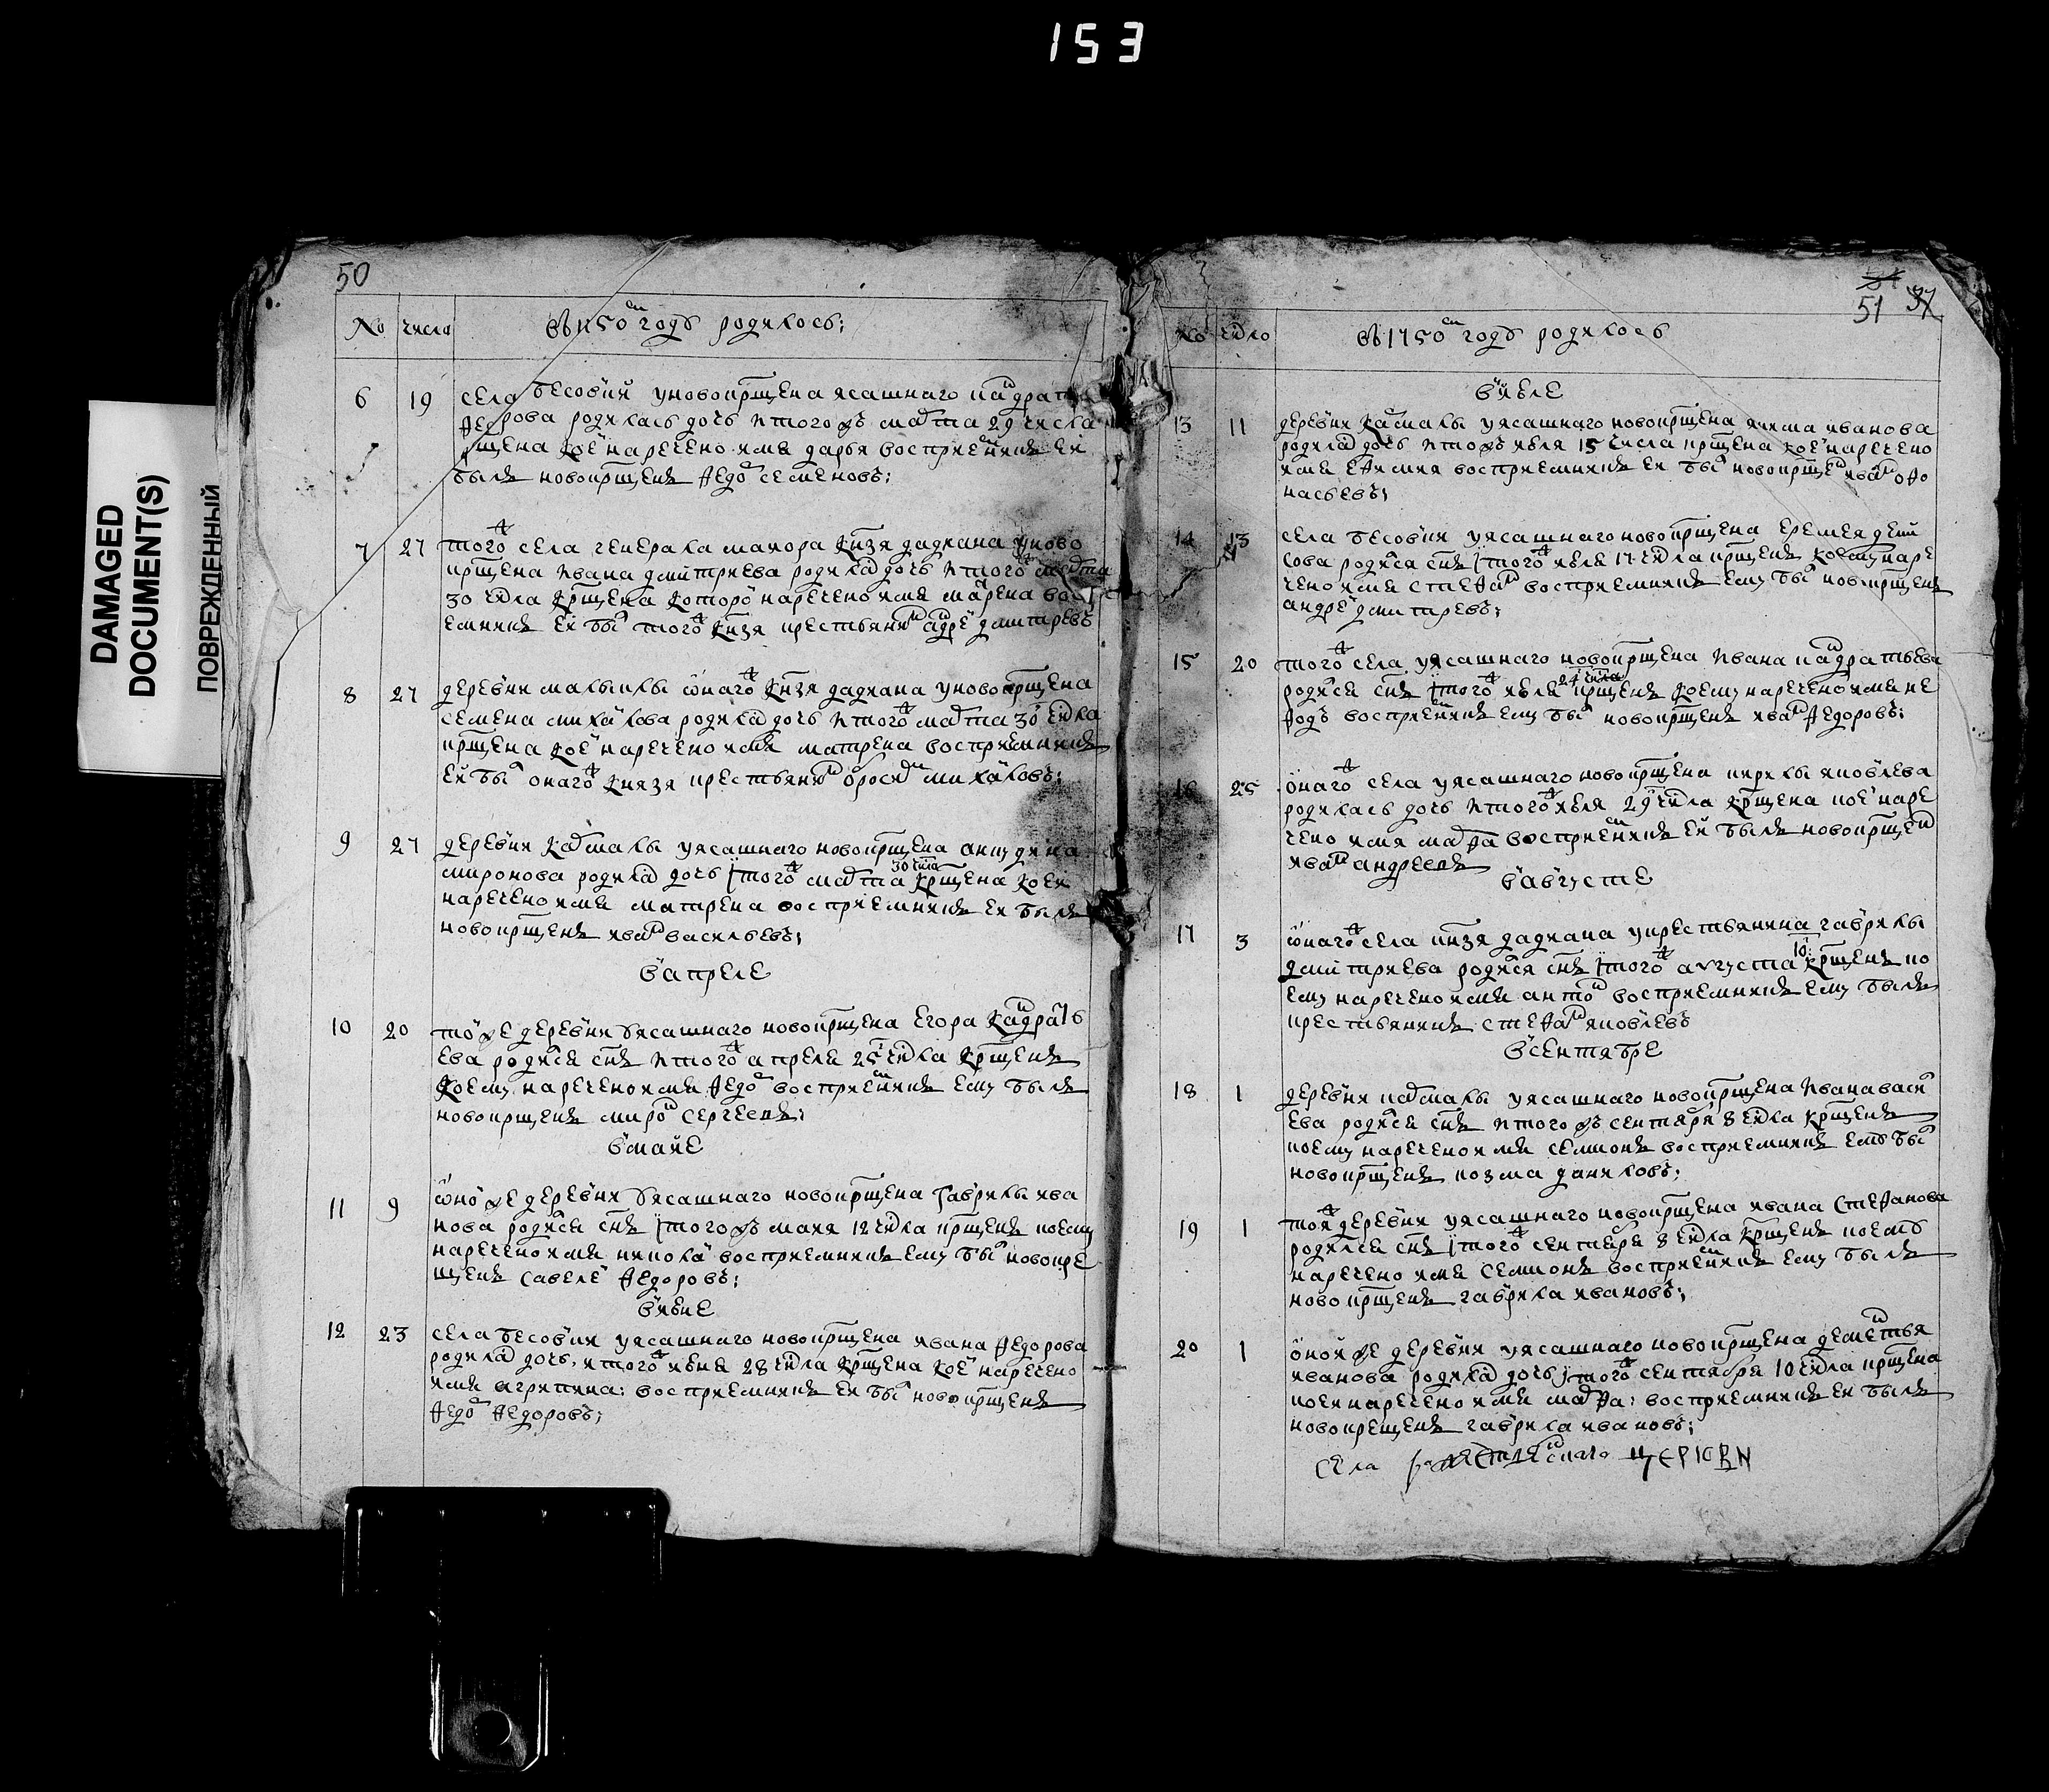 153
DAMAGED
DOCUMENT(S)
ПОВРЕЖДЕННЫЙ
50
№ число въ 1750м годѣ родилось:
6 19 села бесовки у новокрщена ясашнаго кадрат
родилась дочь и того жъ марта 29 числа
кое наречено имя дарья восприемник еи
былъ новокрщенъ федор семеновъ;
7 27 того ж села генерала маиора кнзя дадиана у ново
крщена ивана дмитриева родилас дочь и того ж марта
30 числа крщена которо наречено имя марена
емникъ еи был того ж кнзя крестьянин адре дмитревъ
8 27 деревни малыклы онаго ж кнзя дадиана у новокрщена
семена михалова родилас дочь и того ж марта 30 числа
крщена кое наречено имя матрена восприемникъ
еи был онаго ж князя крестьянин михаловъ;
9 27 деревни кармалы у ясашнаго новокрщена
миронова родилас дочь и того ж марта 30 числа крщена коеи
наречено имя матрена восприемникъ еи былъ
новокрщенъ иван васильевъ;
в апреле
10 20 то же деревни у ясашнаго новокрщена егора кадрать
ева родися снъ и того ж апреля 25 числа крщенъ
коему наречено имя федор восприемникъ ему былъ
новокрщенъ мирон сергеевъ;
в маие
11 9 оно же деревни у ясашнаго новокрщена гаврилы ива
нова родися снъ и того жъ маия 12 числа крщенъ коему
наречено имя никола восприемникъ ему был новокре
щенъ савеле федоровъ;
в июне
12 23 села бесовки у ясашнаго новокрщена ивана федорова
родилас дочь, и того ж июня 28 числа крщена кое наречено
имя агрипина: восприемникъ еи был новокрщенъ
федор федоровъ;
51 37
№ число въ 1750м годѣ родилось
в июле
13 11 деревни кармалы у ясашнаго новокрщена якима иванова
родилас дочь и того жъ июля 15 числа крщена кое наречено
имя ефимия восприемникъ еи был новокрщен иван афо
насьевъ;
14 13 села бесовки у ясашнаго новокрщена еремея дени
сова родися снъ и того ж июля 17 числа крщенъ коему наре
чено имя стефан восприемникъ ему был новокрщенъ
андре дмитревъ;
15 20 того ж села у ясашнаго новокрщена ивана кадратьева
родися снъ и того ж июля 24 числа крщенъ коему наречено имя не
фодъ восприемникъ ему был новокрщенъ иван федоровъ;
16 25 онаго ж села у ясашнаго новокрщена кирилы яковлева
родилась дочь и того ж июля 29 числа крщена кое наре
чено имя марфа восприемникъ еи былъ новокрщен
иван андреевъ
в августе
17 3 онаго ж села кнзя дадиана у крестьянина гаврилы
дмитриева родися снъ и того ж августа 10 крщенъ ко
ему наречено имя антон восприемникъ ему былъ
крестьянинъ стефан яковлевъ
в сентябре
18 1 деревни кармалы у ясашнаго новокрщена ивана васил
ева родися снъ и того жъ сентября 8 числа крщенъ
коему наречено имя семионъ восприемникъ ему был
новокрщенъ козма даниловъ;
19 1 тоя ж деревни у ясашнаго новокрщена ивана стефанова
родился снъ и того ж сентября 8 числа крщенъ коему
наречено имя семионъ восприемникъ ему былъ
новокрщенъ гаврила ивановъ;
20 1 оной же деревни у ясашнаго новокрщена дементья
иванова родилас дочь и того ж сентября 10 числа крщена
коеи наречено имя марфа: восприемникъ еи былъ
новокрещенъ гаврила ивановъ;
села церкви